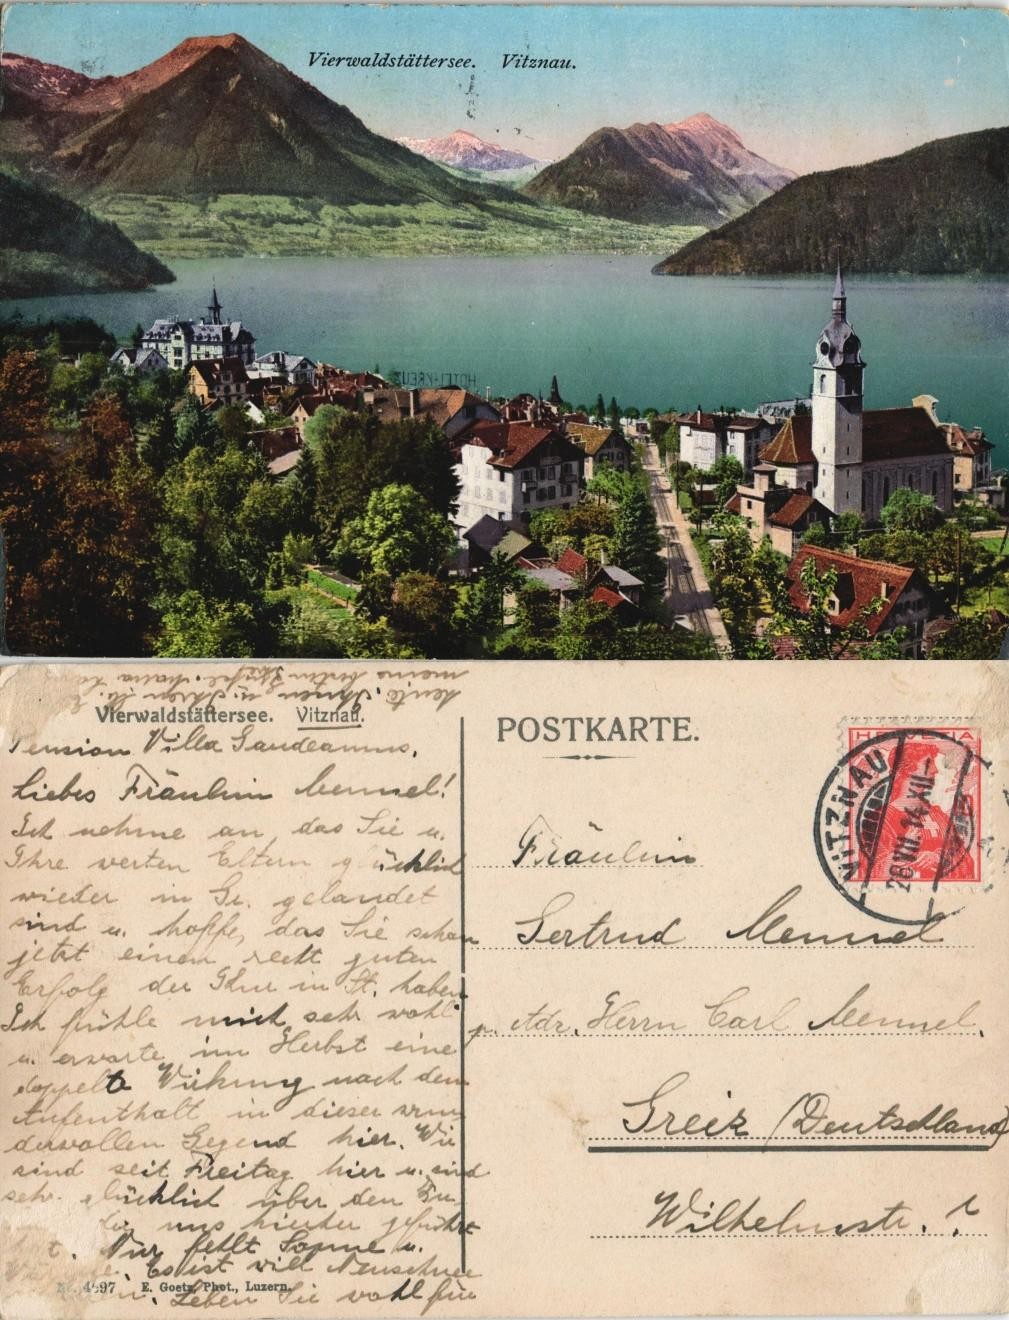 Vierwaldstättersee. Vitznau.
HOTEL-KREUZ
Vierwaldstättersee. Vitznau.
Pension Villa Gaudeamus,
Liebes Fräulein Mennel!
Ich nehme an, das Sie u.
Ihre werten Eltern glücklich
wieder in Gr. gelandet
sind u. hoffe, das Sie schon
jetzt einen recht guten
Erfolg der Chur in St. haben
Ich fühle mich sehr wohl
u. erwarte im Herbst eine
doppelte Wirkung nach dem
Aufenthalt in dieser wun
dervollen Gegend hier. Wir
sind seit Freitag hier u. sind
sehr glücklich über den Zu
uns hierher geführt
Nur fehlt Sonne u.
Es ist viel Neuschnee
Leben Sie wohl für
heute. Ihnen u. Ihren
meine
4497 E. Goetz, Phot., Luzern.
POSTKARTE.
HELVETIA
VITZNAU
26.VIII.14.XII-
Fräulein
Gertrud Mennel
p. Adr. Herrn Carl Mennel,
Greiz (Deutschland)
Wilhelmstr.